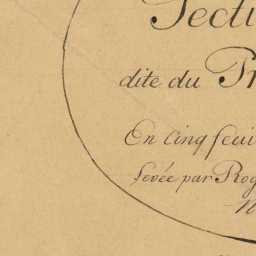 Secti
dite du Pr
En Cinq feui
Levée par Rog